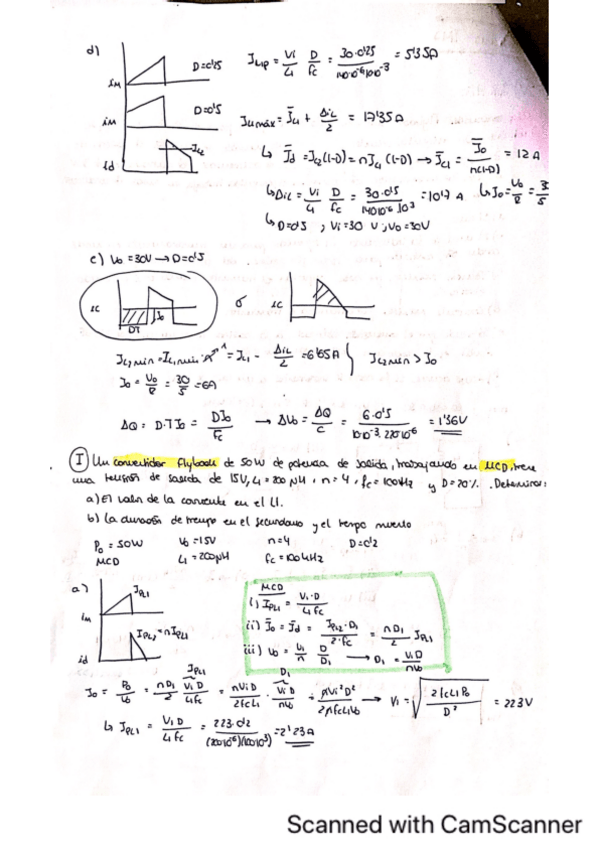 d)
D=0'25
iM
I_Lip = Vi/L1 D/fc = 30·0'25/140·10^-6·10·10^-3 = 5'35A
iM
D=0'5
I_L1máx = I̅_L1 + Δi_L/2 = 17'35A
id
I_L2
↳ I̅d = I_L2(1-D) = nI_L1(1-D) → I̅_L1 = I̅o/n(1-D) = 12A
↳ Δi_L = Vi/L1 D/fc = 30·0'5/140·10^-6·10^3 = 10'7A ↳ Io = Vo/R = 3
↳ D=0'5, Vi=30 V, Vo=30V
c) Vo = 30V → D=0'5
ic
Io
DT
o
ic
I_L2min = I_L1min = I_L1 - Δi_L/2 = 6'65A
I_L2min > Io
Io = Vo/R = 30/5 = 6A
ΔQ = D·T Io = DIo/fc → ΔVo = ΔQ/C = 6·0'5/10·10^-3·220·10^-6 = 1'36V
I Un convertidor flyback de 50W de potencia de salida, trabajando en MCD, tiene
una tensión de salida de 15V, L1=200μH, n=4, fc=100kHz y D=20%. Determinar:
a) El valor de la corriente en el L1.
b) La duración de tiempo en el secundario y el tiempo muerto
Po = 50W Vo = 15V n=4 D=0'2
MCD L1 = 200μH fc = 100kHz
a)
I_PL1
iM
I_PL2 = nI_PL1
id
MCD
i) I_PL1 = Vi·D/L1fc
ii) I̅o = I̅d = I_PL2·D1/2·fc = nD1/2 I_PL1
iii) Vo = Vi/n D/D1 → D1 = ViD/nVo
I_PL1
D1
Io = Po/Vo = nD1/2 ViD/L1fc = nViD/2fcL1 ViD/nVo = nVi²D²/2nfcL1Vo → Vi = √(2fcL1Po/D²) = 223V
↳ I_PL1 = ViD/L1fc = 223·0'2/(200·10^-6)(100·10^3) = 2'23A
Scanned with CamScanner